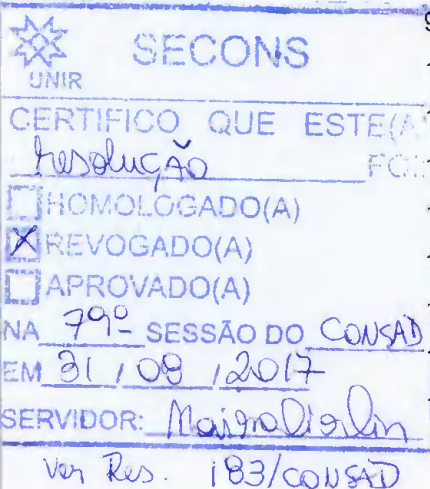 SECONS
UNIR
CERTIFICO QUE ESTE(A)
resolução FOI:
HOMOLOGADO(A)
X REVOGADO(A)
APROVADO(A)
NA 79º SESSÃO DO CONSAD
EM 31 / 08 / 2017
SERVIDOR:
Ver Res. 183/CONSAD